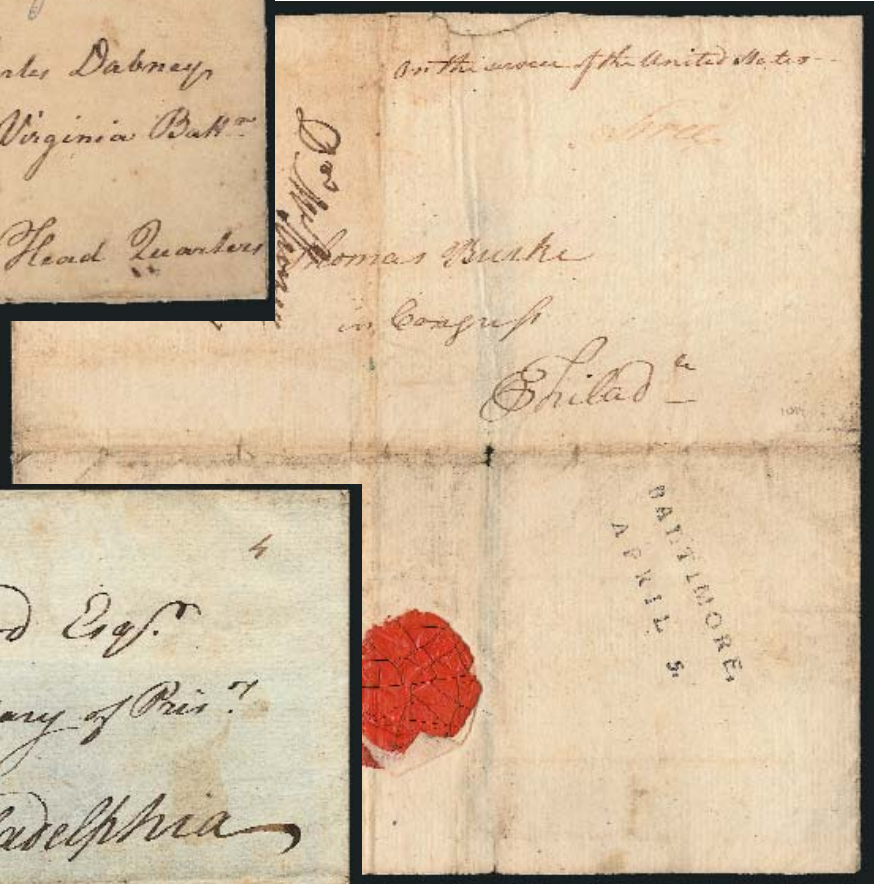 Dabney
Virginia Batt.n
Head Quarters
On the service of the United States
Free
Thomas Burke
in Congress
Philad.a
BALTIMORE,
APRIL 5.
4
Esq.r
of Pris.rs
adelphia